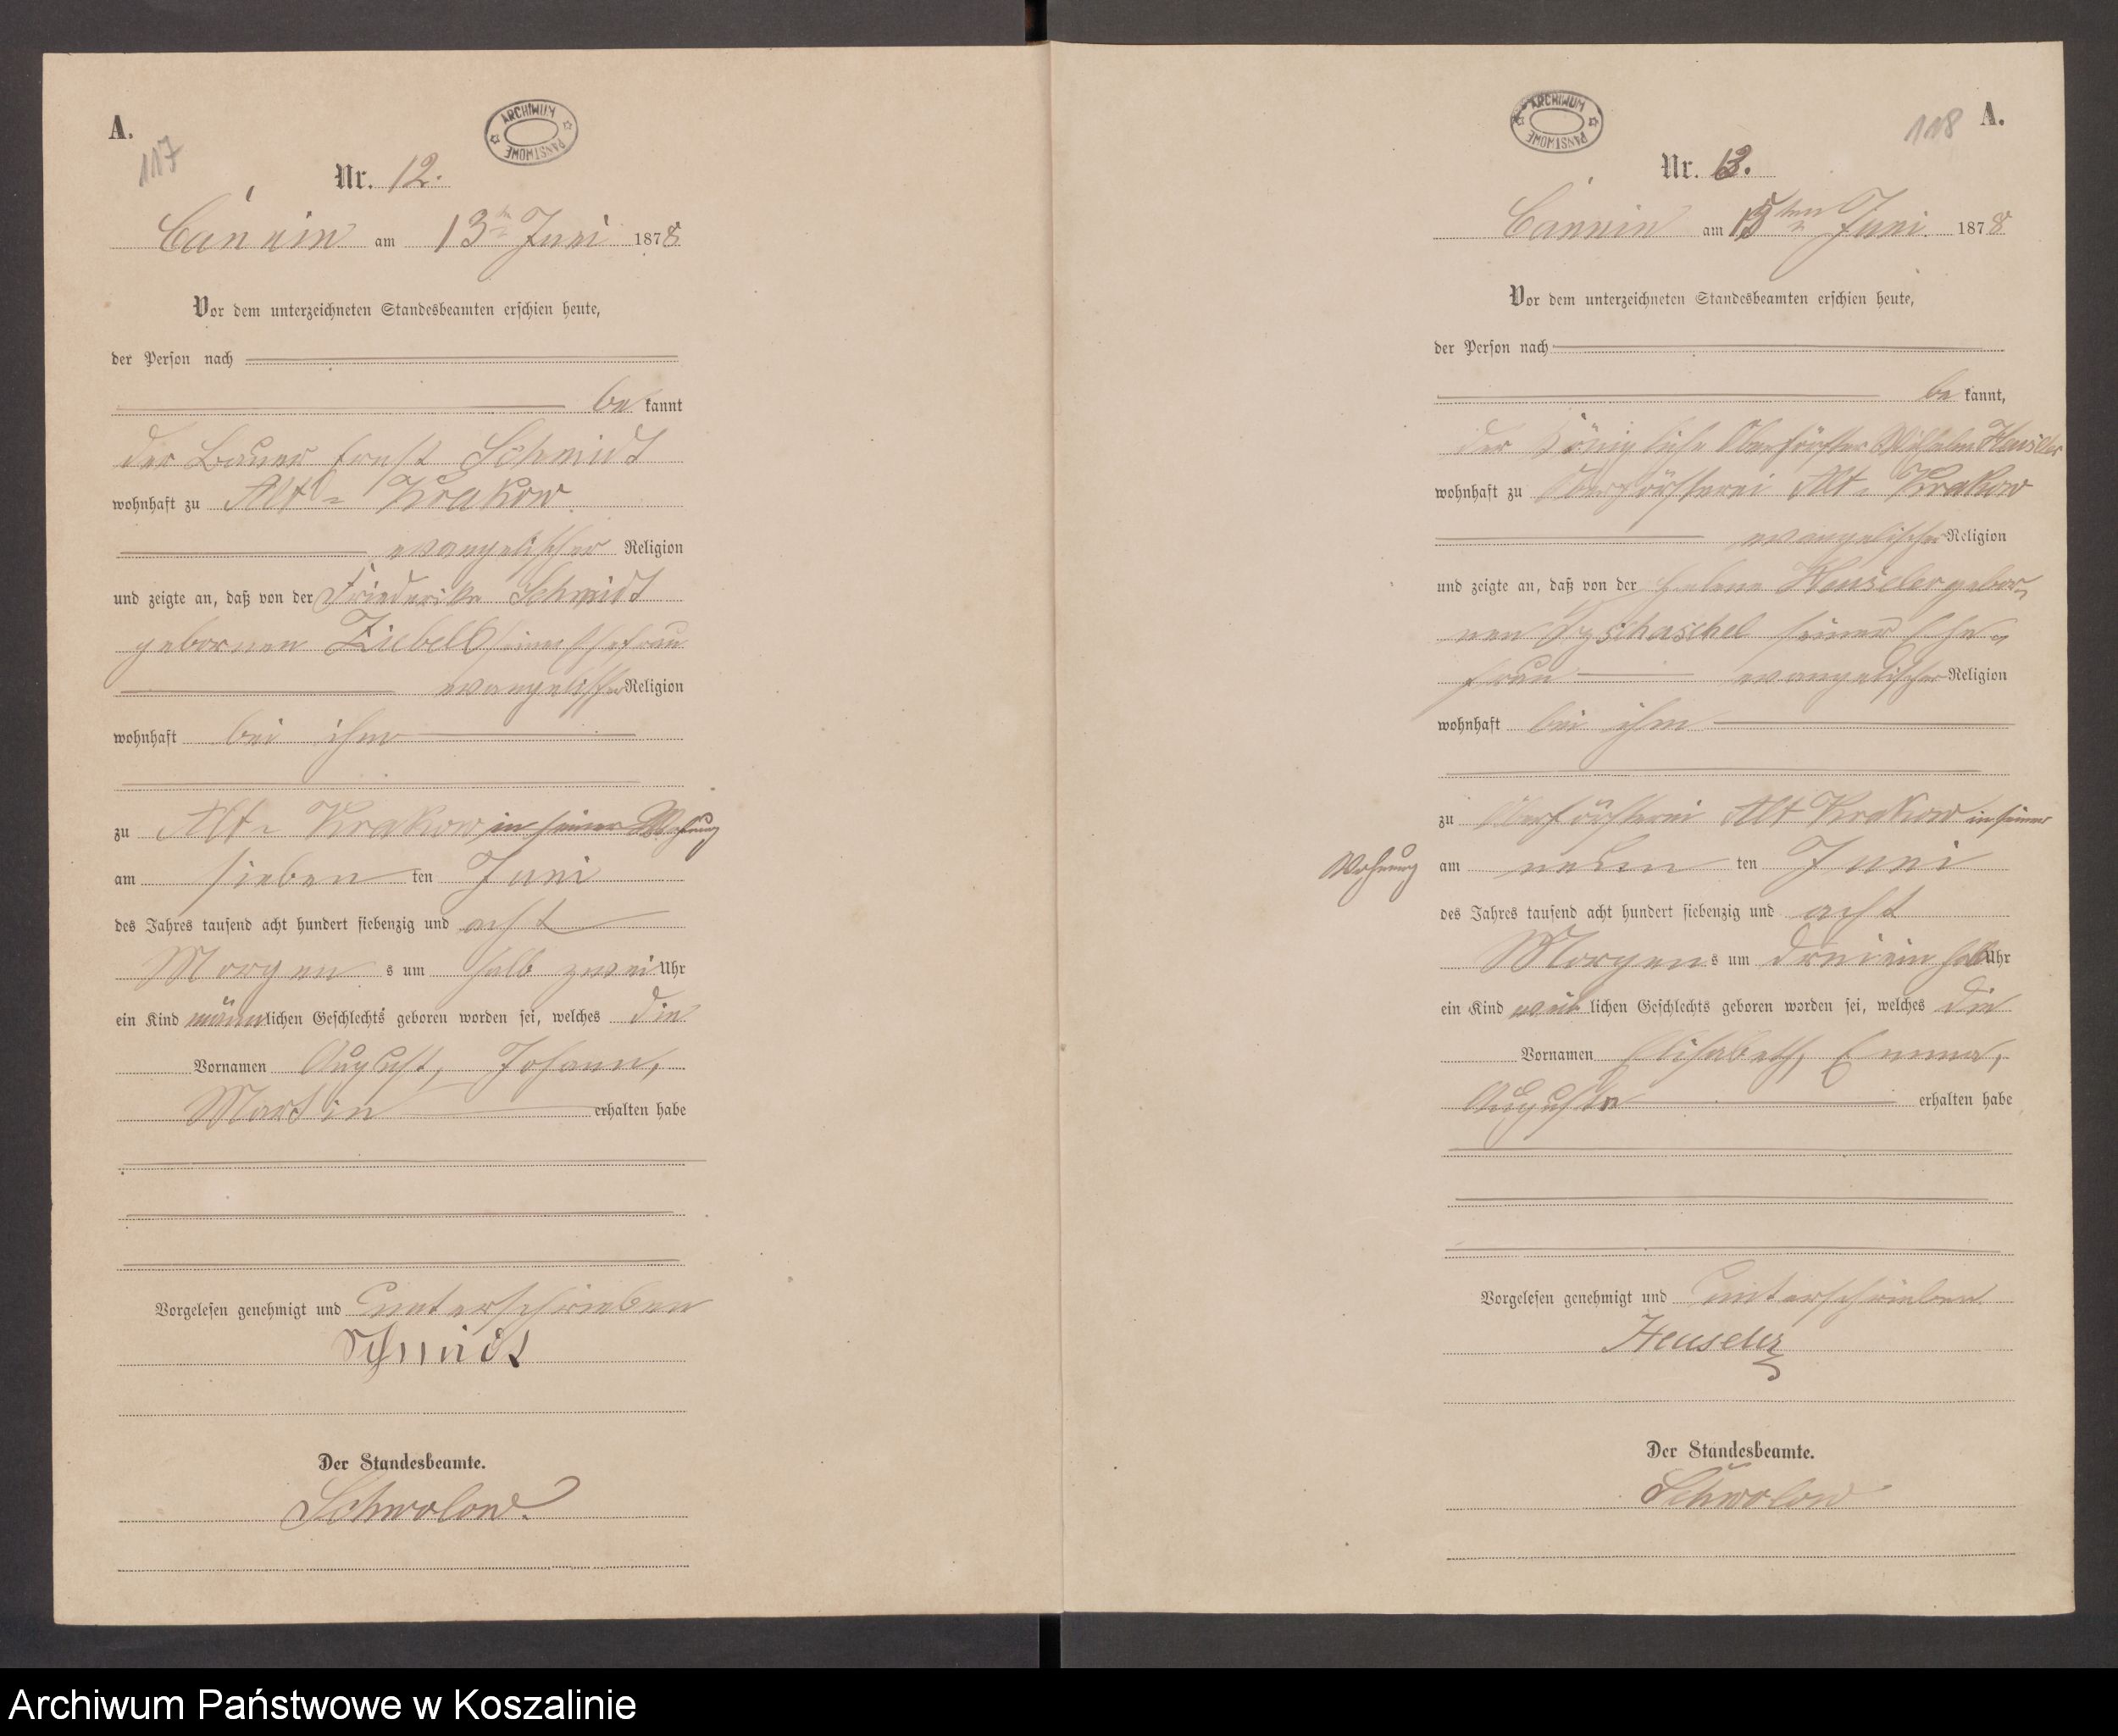 A.
117
ARCHIWUM PAŃSTWOWE
Nr. 12.
Cannin am 13ten Juni 1878
Vor dem unterzeichneten Standesbeamten erschien heute,
der Person nach
be kannt
der Bauer Ernst Schmidt
wohnhaft zu Alt- Krakow
evangelischer Religion
und zeigte an, daß von der Friederike Schmidt
gebornen Ziebell seiner Ehefrau
evangelischer Religion
wohnhaft bei ihm
zu Alt- Krakow in seiner Wohnung
am sieben ten Juni
des Jahres tausend acht hundert siebenzig und acht
Morgen s um halb zwei Uhr
ein Kind männlichen Geschlechts geboren worden sei, welches die
Vornamen August, Johann,
Martin erhalten habe
Vorgelesen genehmigt und unterschrieben
Schmidt
Der Standesbeamte.
Schwolow.
ARCHIWUM PAŃSTWOWE
118
A.
Nr. 13.
Cannin am 15ten Juni 1878
Vor dem unterzeichneten Standesbeamten erschien heute,
der Person nach
be kannt,
der Königliche Oberförster Wilhelm Heuseler
wohnhaft zu Oberförsterei Alt- Krakow
evangelischer Religion
und zeigte an, daß von der Helene Heuseler gebor-
nen seiner Ehe-
frau evangelischer Religion
wohnhaft bei ihm
zu Oberförsterei Alt Krakow in seiner
Wohnung am neun ten Juni
des Jahres tausend acht hundert siebenzig und acht
Morgens um dreieinhalb Uhr
ein Kind weiblichen Geschlechts geboren worden sei, welches die
Vornamen Elisabeth, Emma,
Auguste erhalten habe
Vorgelesen genehmigt und unterschrieben
Heuseler
Der Standesbeamte.
Schwolow
Archiwum Państwowe w Koszalinie